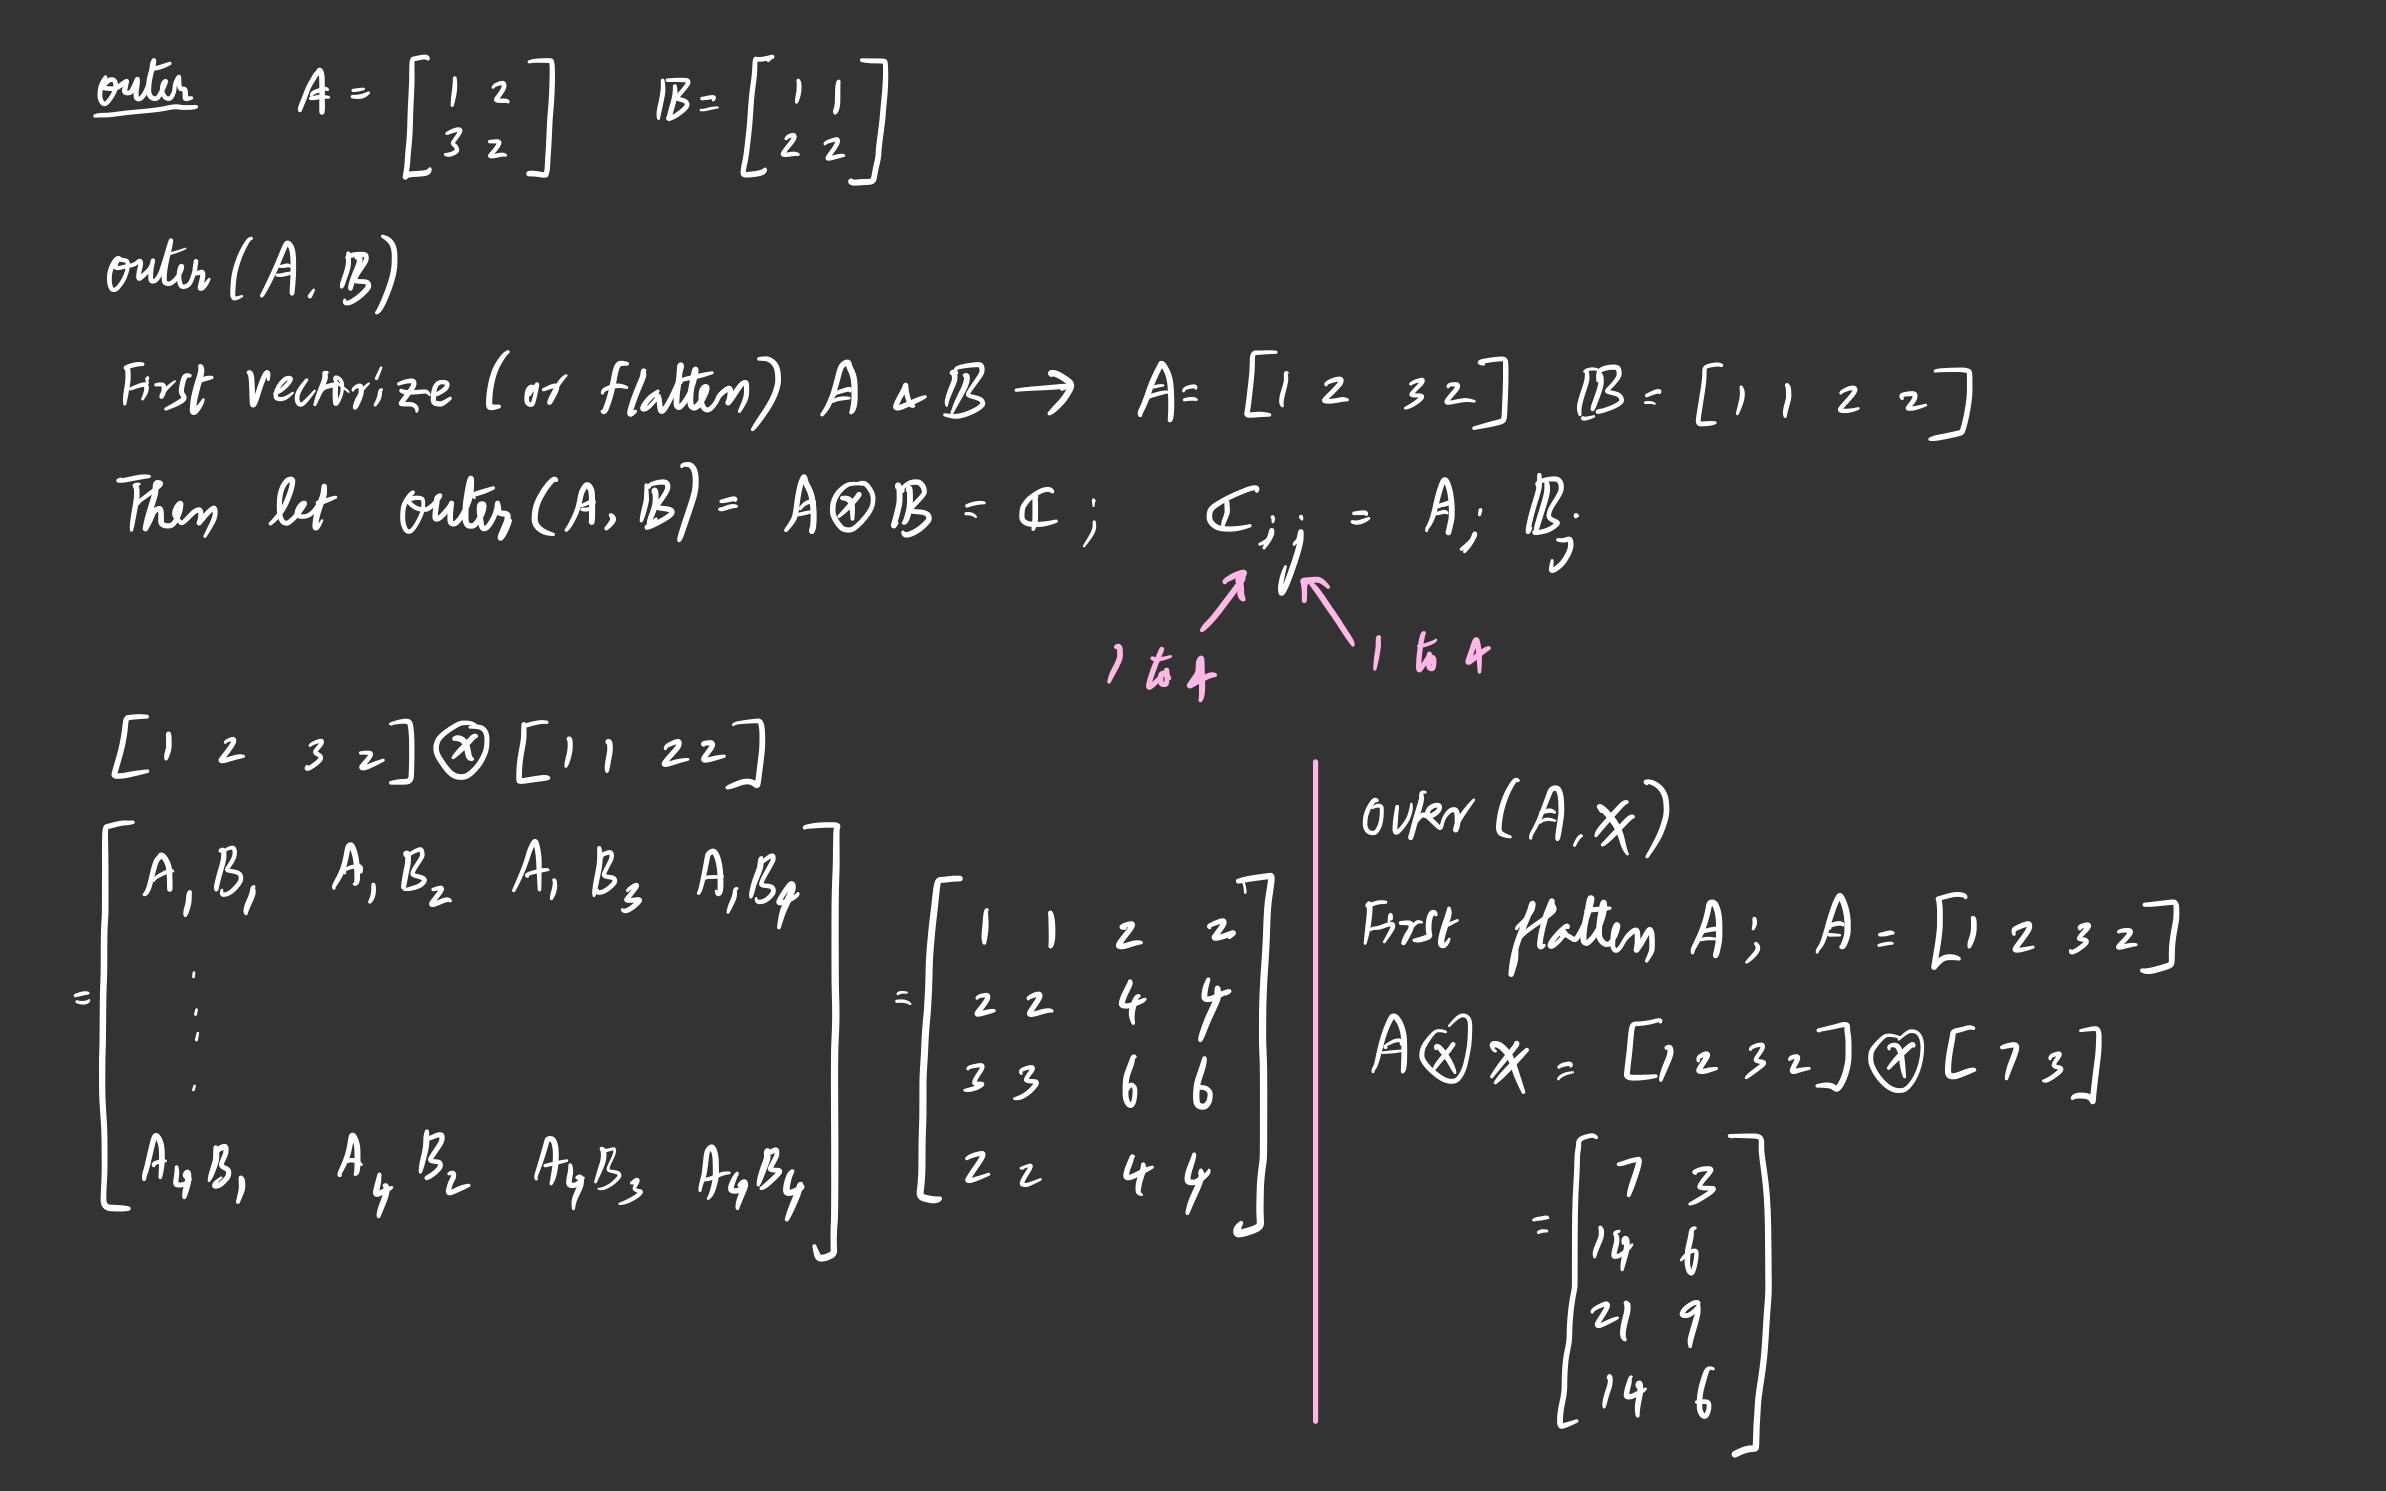 outer A = [1 2; 3 2] B = [1 1; 2 2]
outer (A, B)
First vectorize (or flatten) A & B → A = [1 2 3 2] B = [1 1 2 2]
Then let outer (A, B) = A ⊗ B = C ; C i j = A i B j
1 to 4 1 to 4
[1 2 3 2] ⊗ [1 1 2 2]
= [A₁B₁ A₁B₂ A₁B₃ A₁B₄
⋮
A₄B₁ A₄B₂ A₄B₃ A₄B₄]
= [1 1 2 2
2 2 4 4
3 3 6 6
2 2 4 4]
outer (A, x)
First flatten A ; A = [1 2 3 2]
A ⊗ x = [1 2 3 2] ⊗ [7 3]
= [7 3
14 6
21 9
14 6]